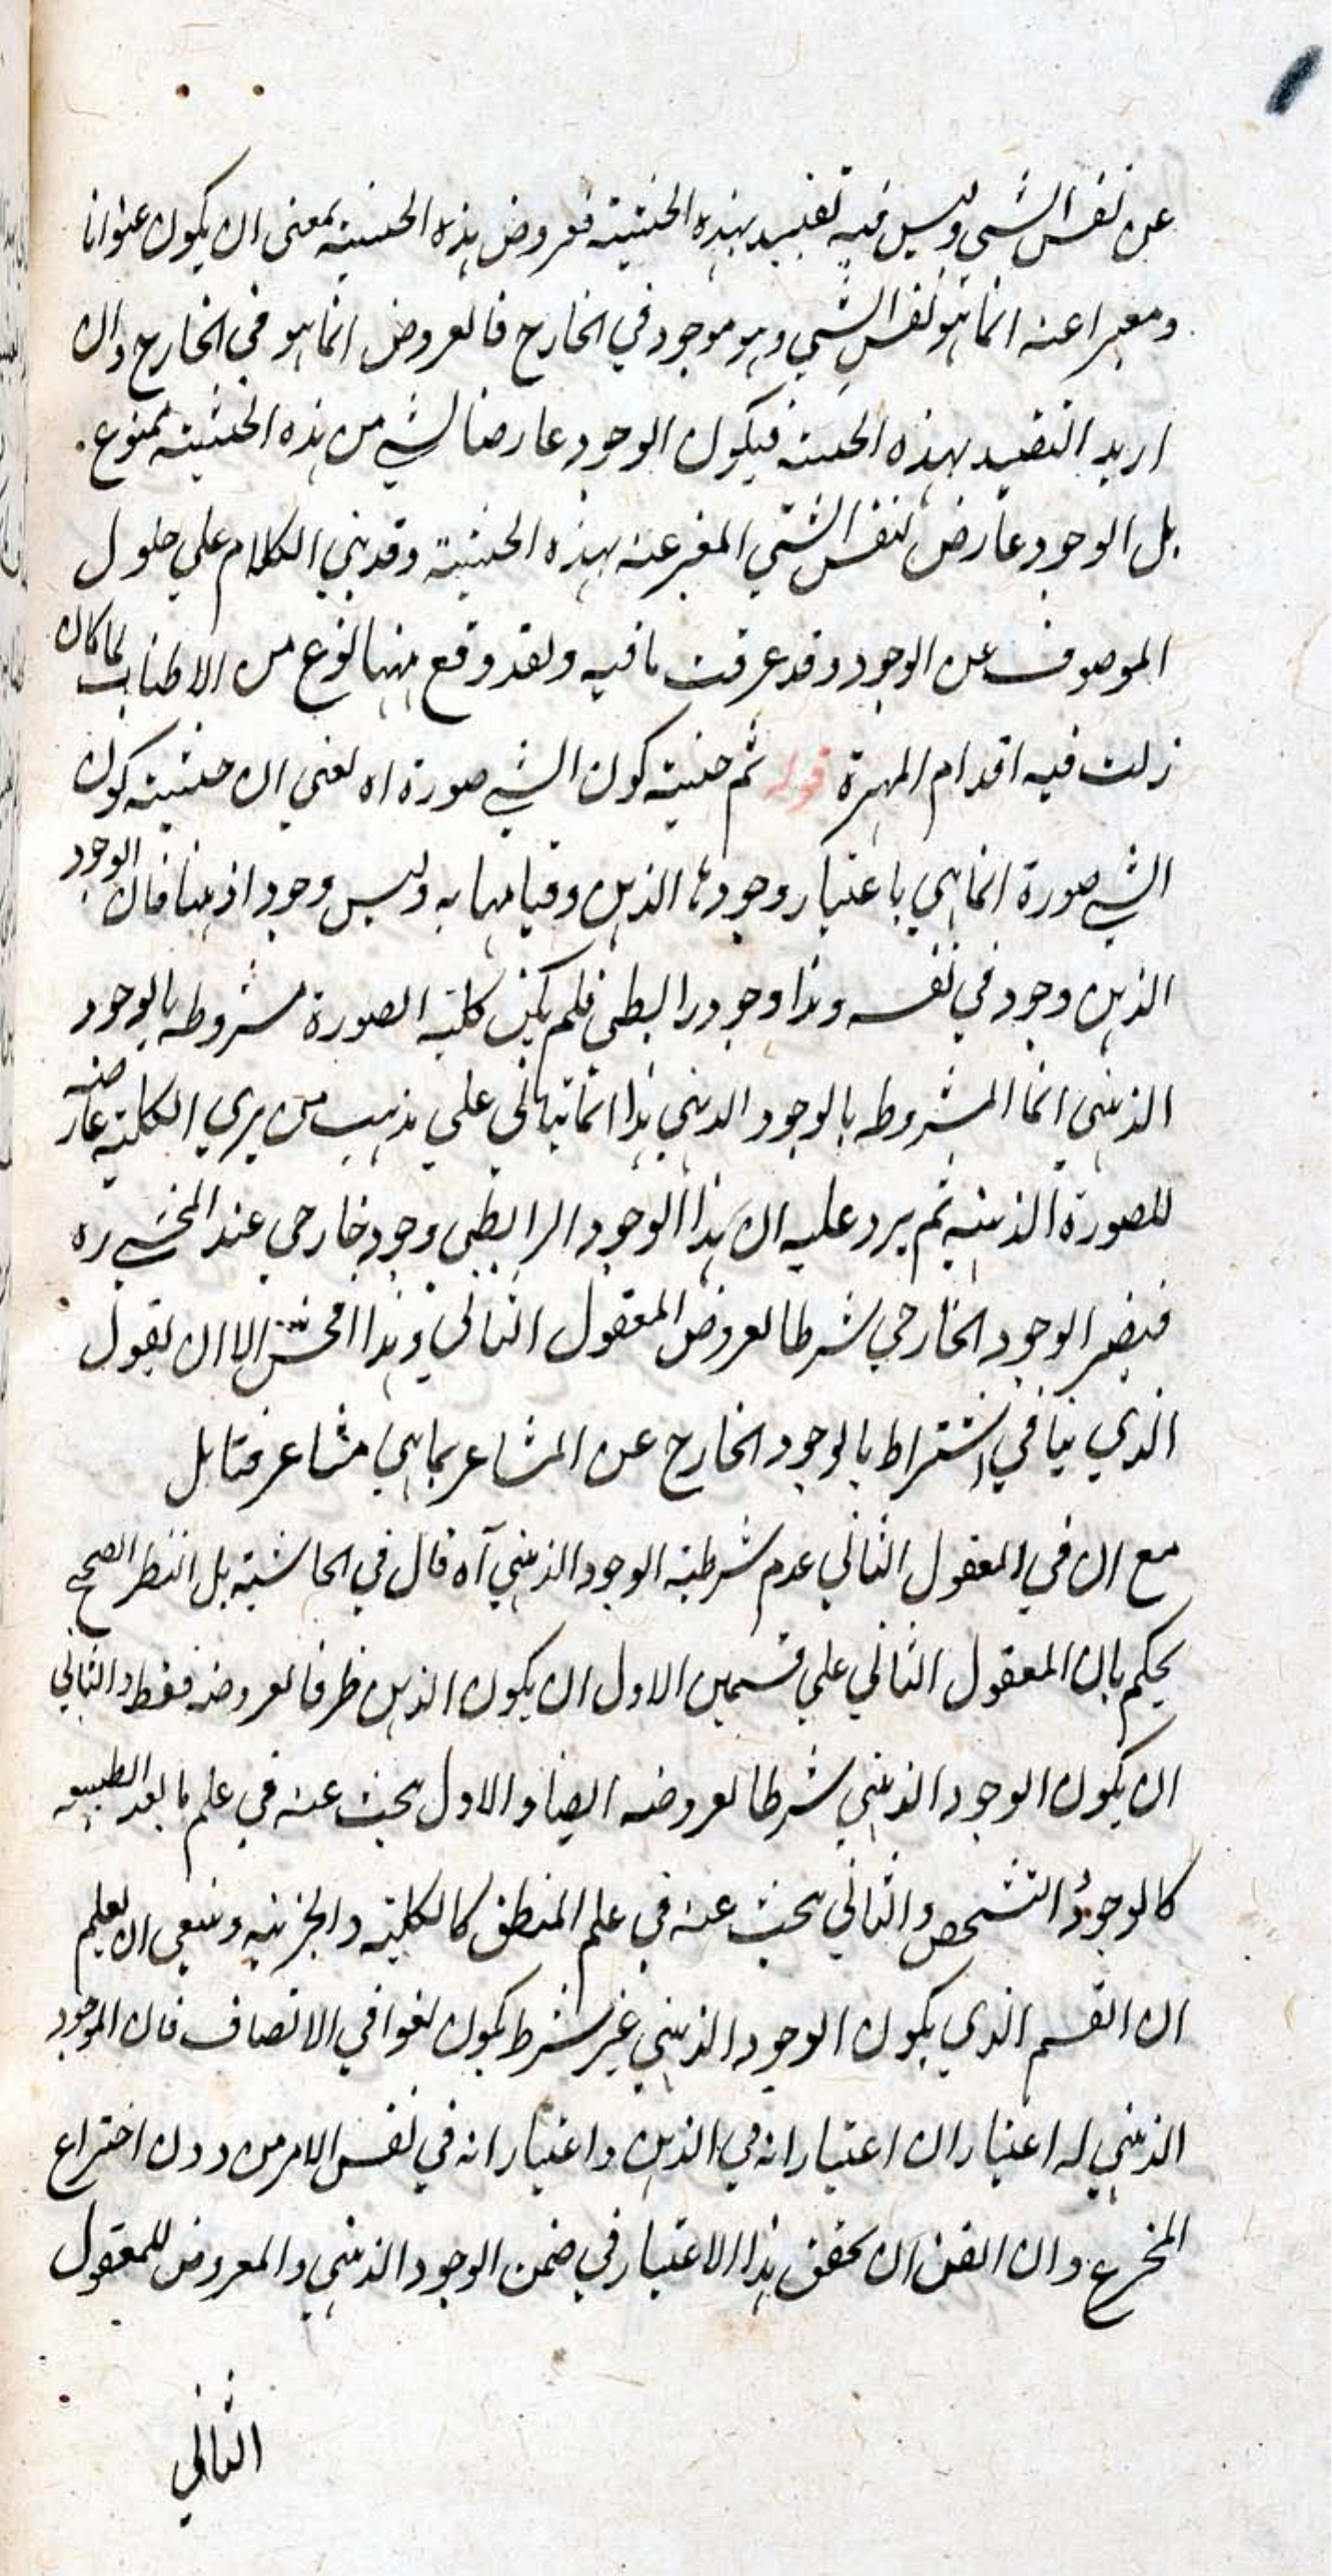 عن نفس الشي وليس فيه تقييد بهذه الحيثية فعروض هذه الحيثية بمعنى ان يكون عنوانا
ومعبرا عنه انما هو لنفس الشي وهو موجود في الخارج فالعروض انما هو في الخارج وان
اريد التقييد بهذه الحيثية فيكون الوجود عارضا لشي من هذه الحيثية ممنوع
بل الوجود عارض لنفس الشي المعبر عنه بهذه الحيثية وقد بني الكلام على حلول
الموصوف عن الوجود وقد عرفت ما فيه ولقد وقع ههنا نوع من الاطناب لما كان
زلت فيه اقدام المهرة قوله ثم حيثية كون الشي صورة اه يعني ان حيثية كون
الشي صورة انما هي باعتبار وجودها الذهن وقيامها به وليس وجودا ذهنيا فان الوجود
الذهن وجود في نفسه وهذا وجود رابطي فلم يكن كلية الصورة مشروطه بالوجود
الذهني انما المشروطه بالوجود الذهني هذا انما يتاتى على مذهب من يري الكلية عارضه
للصورة الذهنيه ثم يرد عليه ان هذا الوجود الرابطي وجود خارجي عند المحشي ره
فيصير الوجود الخارجي شرطا لعروض المعقول الثاني وهذا افحش الا ان يقول
الذي ينافي اشتراط بالوجود الخارج عن المشاعر بما هي مشاعر فتامل
مع ان في المعقول الثاني عدم شرطية الوجود الذهني آه قال في الحاشية بل النظر الصحيح
يحكم بان المعقول الثاني على قسمين الاول ان يكون الذهن ظرفا لعروضه فقط والثاني
ان يكون الوجود الذهني شرطا لعروضه ايضا والاول يبحث عنه في علم ما بعد الطبيعه
كالوجود والتشخص والثاني يبحث عنه في علم المنطق كالكلية والجزئيه وينبغي ان يعلم
ان القسم الذي يكون الوجود الذهني غير شرط يكون لغوا في الاتصاف فان الموجود
الذهني له اعتباران اعتبار انه في الذهن واعتبار انه في نفس الامر من دون اختراع
المخترع وان اتفق ان تحقق هذا الاعتبار في ضمن الوجود الذهني والمعروض للمعقول
الثاني